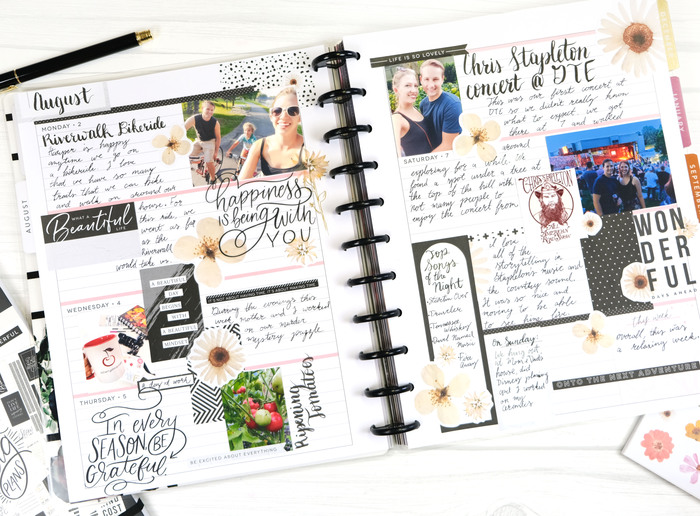 August
MONDAY • 2
Riverwalk Bikeride
Jasper is happy
anytime we go on
a bikeride. I love
that we have so many
trails that we can bike
and walk on around our
house. For
this ride we
went as far
as the
Riverwalk
would take us.
AUGUST
WHAT A
Beautiful
LIFE
happiness
is being with
YOU
WEDNESDAY • 4
A BEAUTIFUL
DAY
BEGINS
WITH
A BEAUTIFUL
MINDSET
During the evenings this
week, mother and I worked
on our murder
mystery puzzle.
a day at work
THURSDAY • 5
In every
SEASON BE
Grateful.
Ripening
tomatoes
BE EXCITED ABOUT EVERYTHING
LIFE IS SO LOVELY
Chris Stapleton
concert @ DTE
This was our first concert at
DTE so we didn't really know
what to expect. We got
there at 7 and walked
around
SATURDAY • 7
exploring for a while. We
found a spot under a tree at
the top of the hill with
not many people to
enjoy the concert from.
CHRIS STAPLETON
Top
Songs
of the
Night
Starting Over
Traveller
Tennessee
Whiskey
Fire
Away
I love
all of the
storytelling in
Stapleton's music and
the country sound.
It was so nice and
moving to be able
to see him live.
WON
DER
FUL
DAYS AHEAD
On Sunday
overall, this was
a relaxing week.
ONTO THE NEXT ADVENTURE
JANUARY
SEPTEMBER